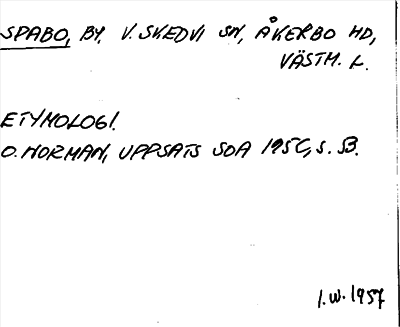 SPABO, BY, V. SKEDVI SN, ÅKERBO HD,
VÄSTM. L.
ETYMOLOGI.
O. NORMAN, UPPSATS SOA 1956, S. 53.
I.W. 1957